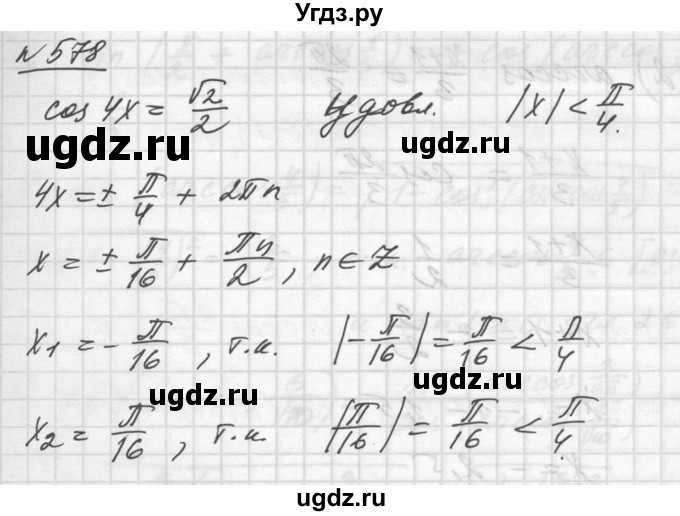 Угдз.ру
№578
cos 4x = √2/2 удовл. |x| < П/4.
ugdz.ru ugdz.ru
4x = ± П/4 + 2Пn
x = ± П/16 + Пn/2, n ∈ Z
x₁ = - П/16, т.к. |-П/16| = П/16 < П/4
ugdz.ru ugdz.ru
x₂ = П/16, т.к. |П/16| = П/16 < П/4.
ugdz.ru
ugdz.ru